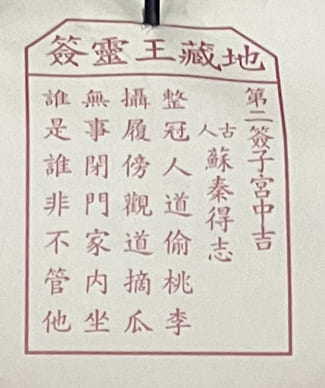 地藏王靈簽
第二簽子宮中吉
古人蘇秦得志
整冠人道偷桃李
攝履傍觀道摘瓜
無事閉門家内坐
誰是誰非不管他